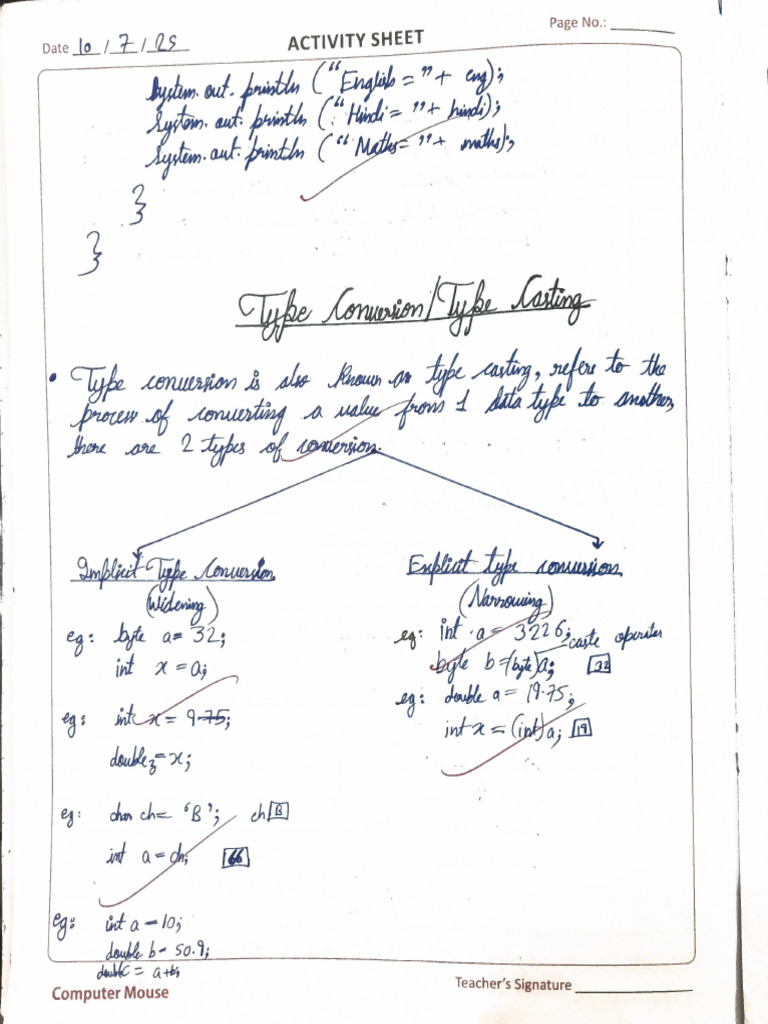 Page No.:
Date 10 / 7 / 25
ACTIVITY SHEET
System.out.println ("English = "+ eng);
System.out.println ("Hindi = "+ hindi);
System.out.println ("Maths= "+ maths);
}
}
Type Conversion/Type Casting
• Type conversion is also known as type casting, refers to the
process of converting a value from 1 data type to another,
there are 2 types of conversion.
Implicit Type Conversion
(Widening)
eg: byte a = 32;
int x = a;
eg: int x = 9 75;
double z = x;
eg: char ch = 'B'; ch B
int a = ch; 66
eg: int a = 10;
double b = 50.9;
double c = a+b;
Explicit type conversion
(Narrowing)
eg: int a = 3226;
caste operator
byte b = (byte)a; 32
eg: double a = 19.75;
int x = (int)a; 19
Computer Mouse
Teacher's Signature